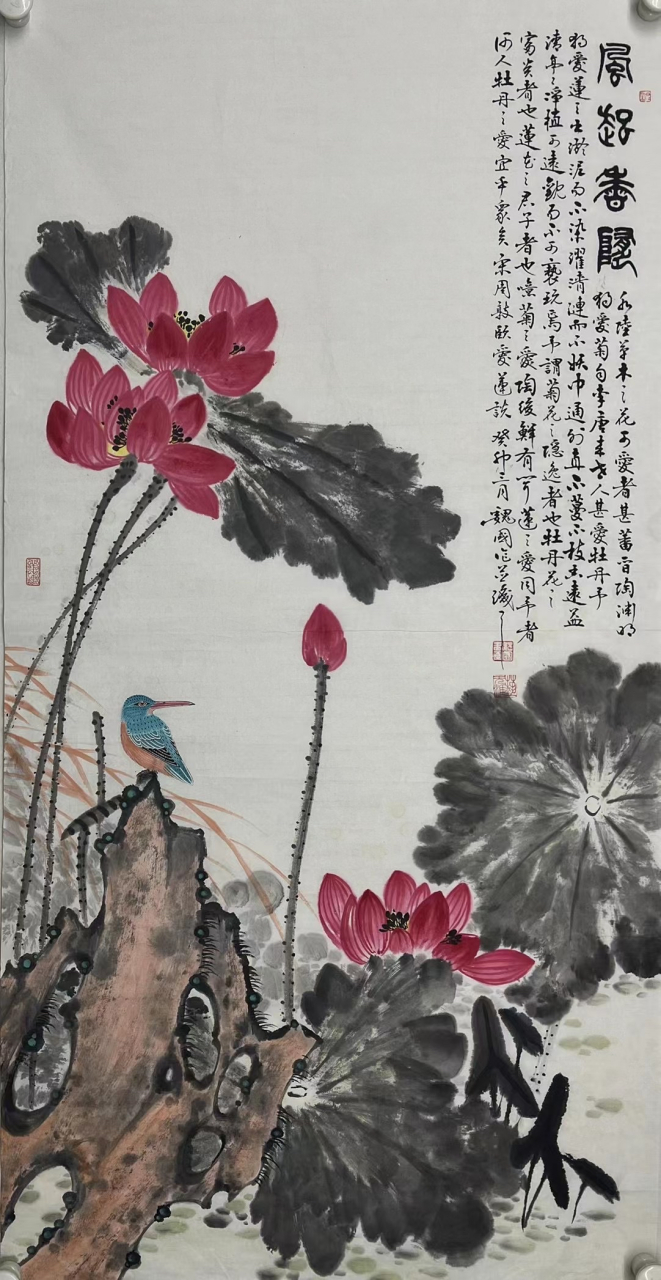 風起香
水陸草木之花可愛者甚蕃晋陶渊明
独愛菊自李唐来世人甚愛牡丹予
独愛蓮之出淤泥而不染濯清漣而不妖中通外直不蔓不枝香遠益
清亭亭淨植可遠觀而不可褻玩焉予謂菊花之隱逸者也牡丹花之
富貴者也蓮花之君子者也噫菊之愛陶後鮮有聞蓮之愛同予者
何人牡丹之愛宜乎衆矣宋周敦頤愛蓮説 癸卯三月魏國并識之